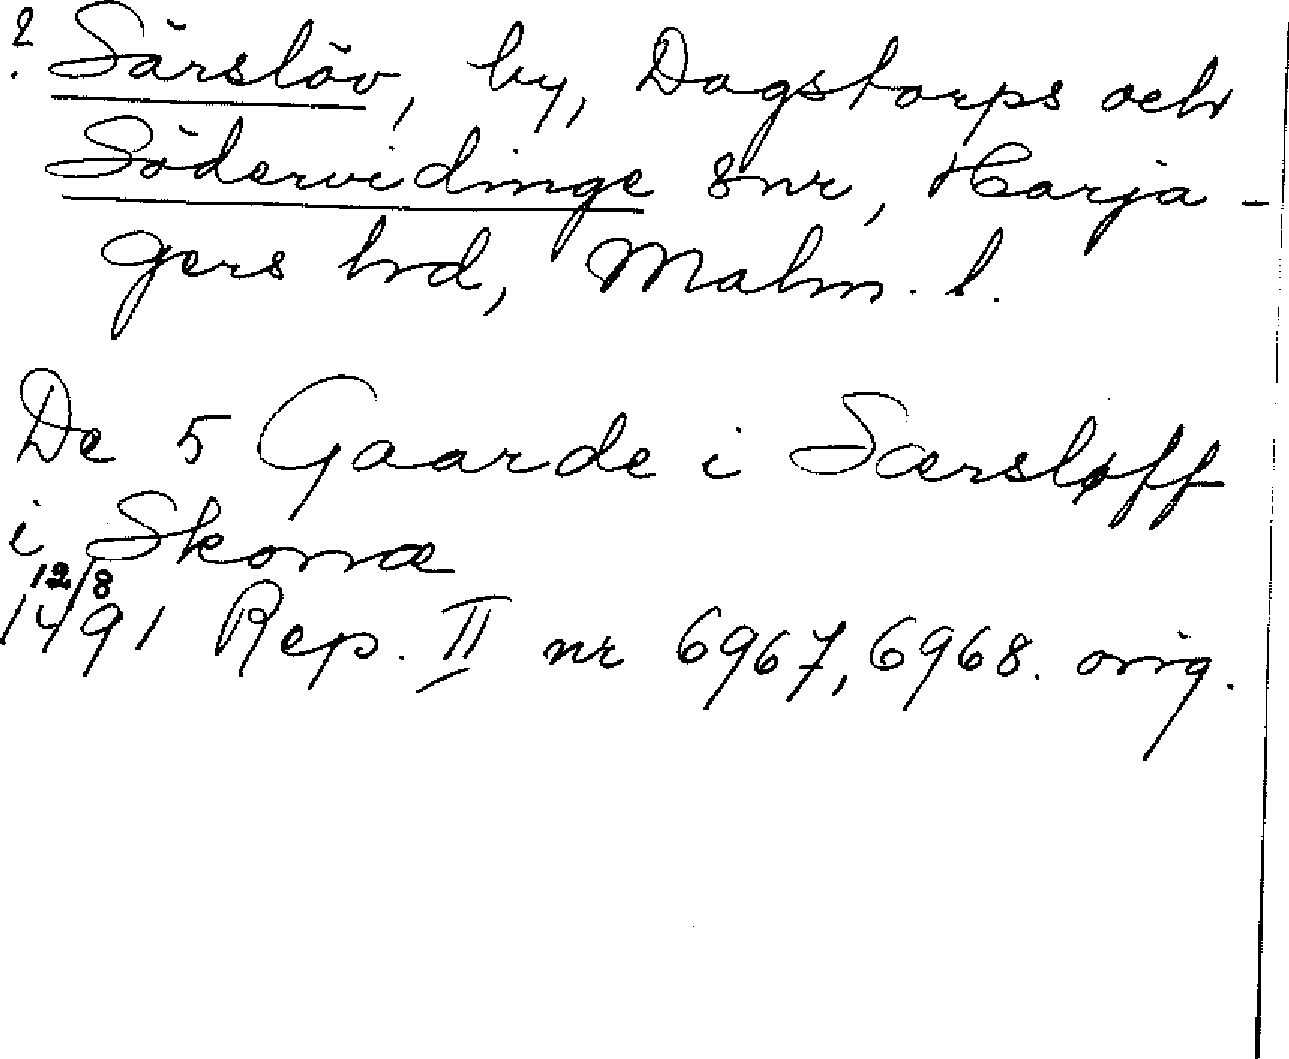 ? Särslöv, by, Dagstorps och
Södervidinge snr, Harja-
gers hrd, Malm. l.
De 5 Gaarde i Særsløff
i Skonæ
12/8
1491 Rep. II nr 6967, 6968. orig.